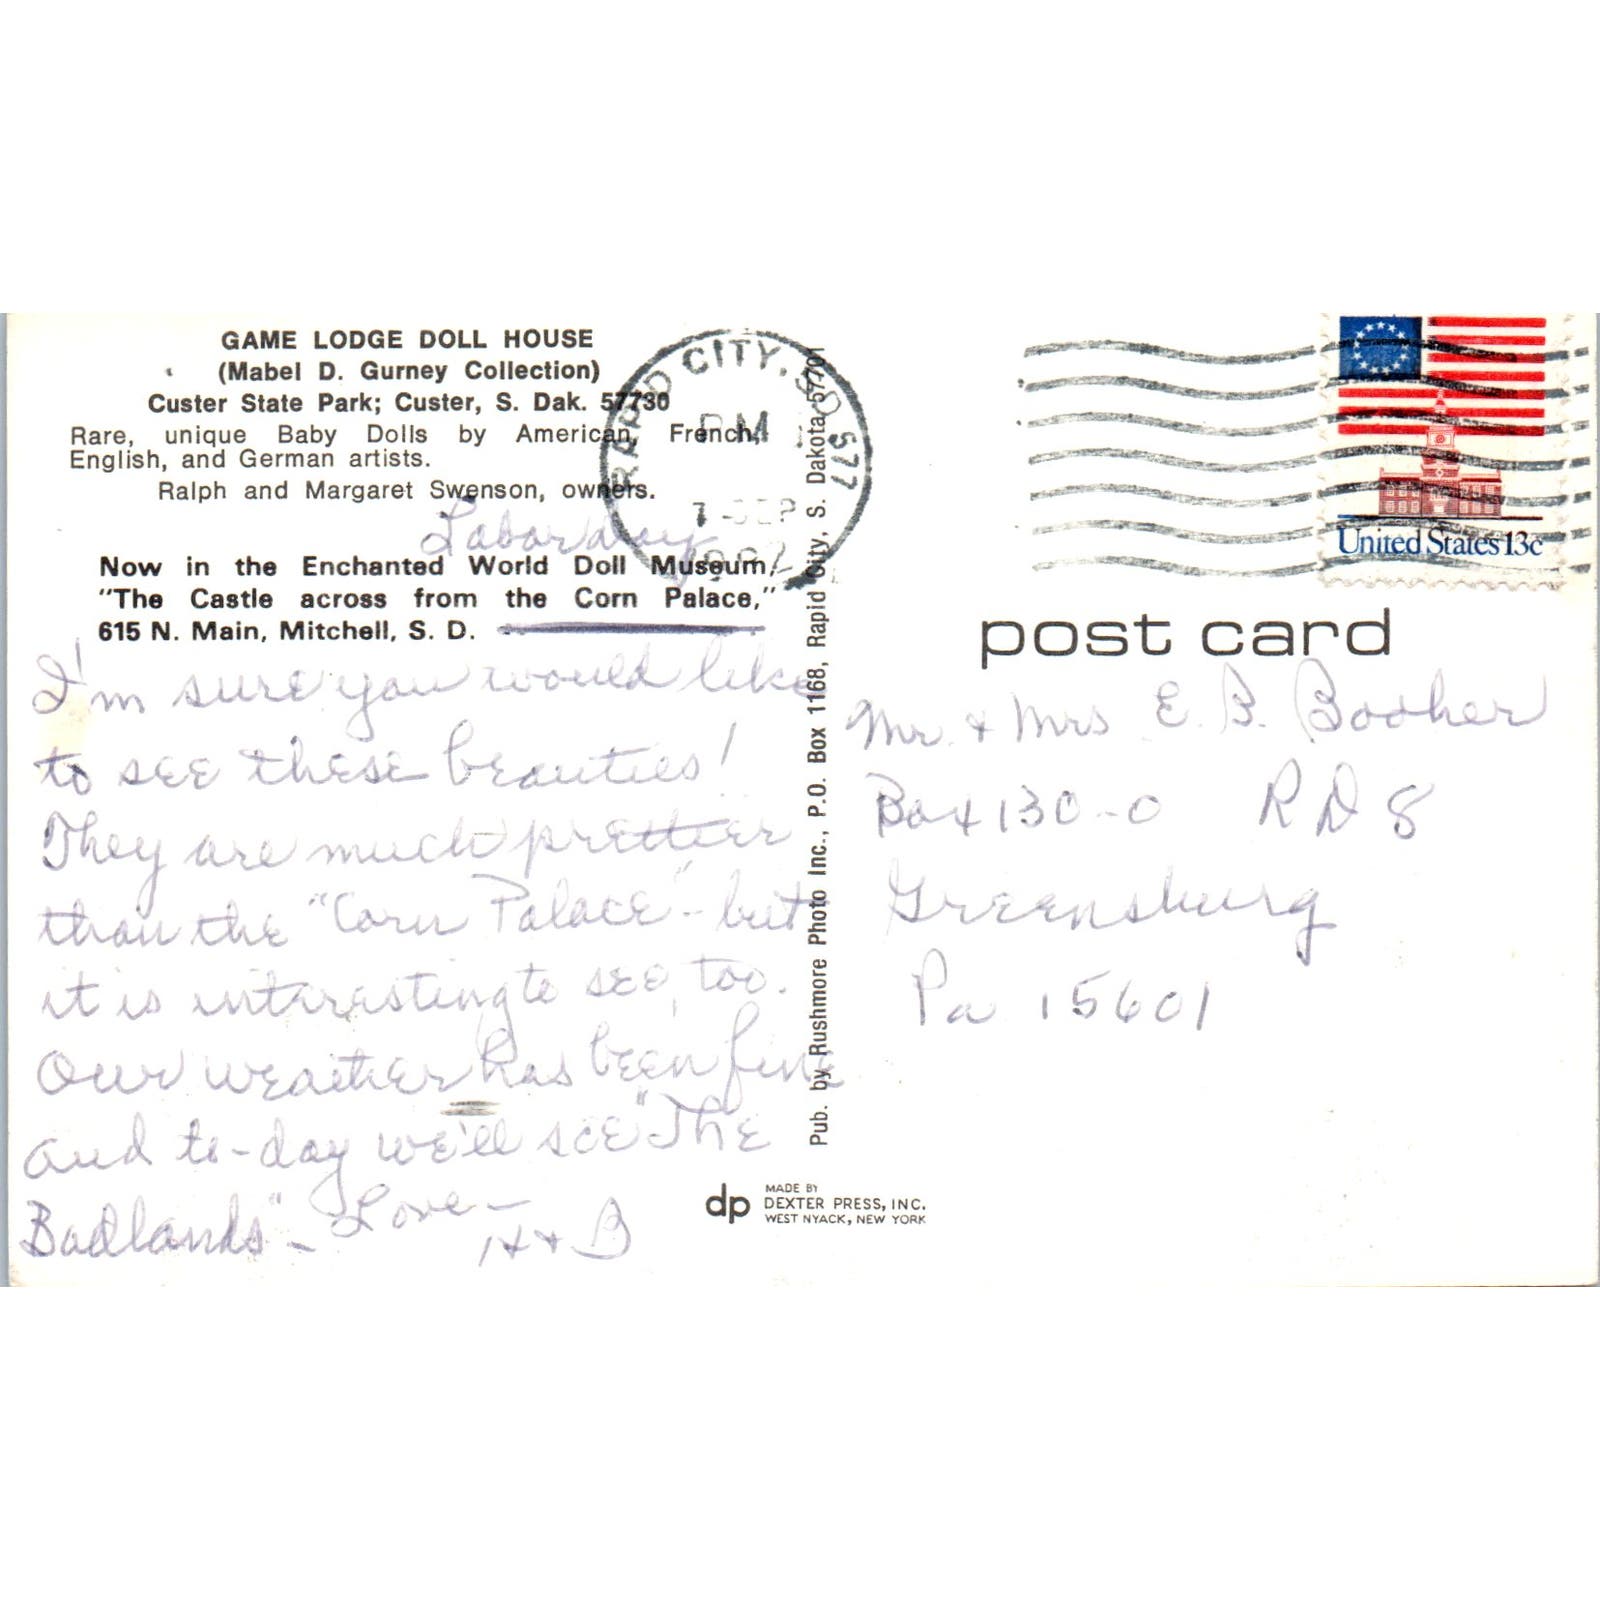 GAME LODGE DOLL HOUSE
(Mabel D. Gurney Collection)
Custer State Park; Custer, S. Dak. 57730
Rare, unique Baby Dolls by American, French,
English, and German artists.
Ralph and Margaret Swenson, owners.
Labor day
Now in the Enchanted World Doll Museum,
"The Castle across from the Corn Palace,"
615 N. Main, Mitchell, S. D.
I'm sure you would like
to see these beauties!
They are much prettier
than the "Corn Palace" - but
it is interesting to see, too.
Our weather has been fine
and to-day we'll see "The
Badlands" - Love -
H + B
RAPID CITY, SD 577
PM
7 SEP
1982
Pub. by Rushmore Photo Inc., P.O. Box 1168, Rapid City, S. Dakota 57701
dp MADE BY
DEXTER PRESS, INC.
WEST NYACK, NEW YORK
United States 13c
post card
Mr. & Mrs E. B. Booher
Box 130-0 RD 8
Greensburg
Pa 15601